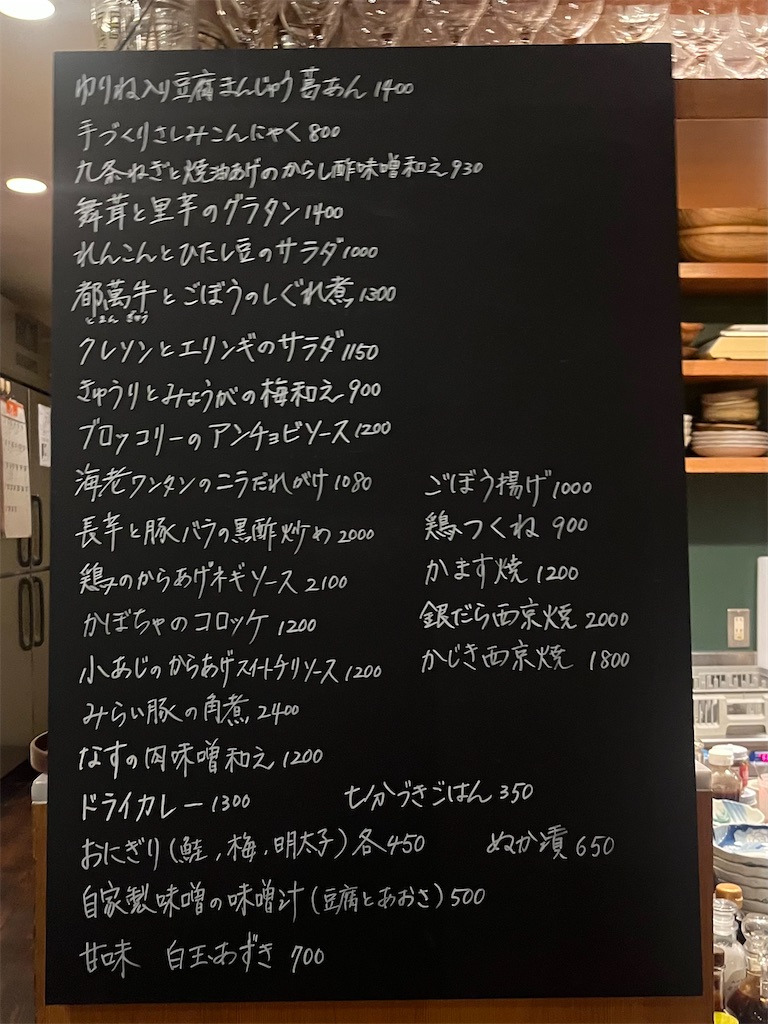 ゆりね入り豆腐まんじゅう葛あん 1400
手づくりさしみこんにゃく 800
九条ねぎと焼油あげのからし酢味噌和え 930
舞茸と里芋のグラタン 1400
れんこんとひたし豆のサラダ 1000
都萬牛とごぼうのしぐれ煮 1300
とまん ぎゅう
クレソンとエリンギのサラダ 1150
きゅうりとみょうがの梅和え 900
ブロッコリーのアンチョビソース 1200
海老ワンタンのニラだれがけ 1080
長芋と豚バラの黒酢炒め 2000
鶏のからあげネギソース 2100
かぼちゃのコロッケ 1200
小あじのからあげスイートチリソース 1200
みらい豚の角煮 2400
なすの肉味噌和え 1200
ごぼう揚げ 1000
鶏つくね 900
かます焼 1200
銀だら西京焼 2000
かじき西京焼 1800
ドライカレー 1300 七分づきごはん 350
おにぎり(鮭、梅、明太子)各450 ぬか漬 650
自家製味噌の味噌汁(豆腐とあおさ)500
甘味 白玉あずき 700